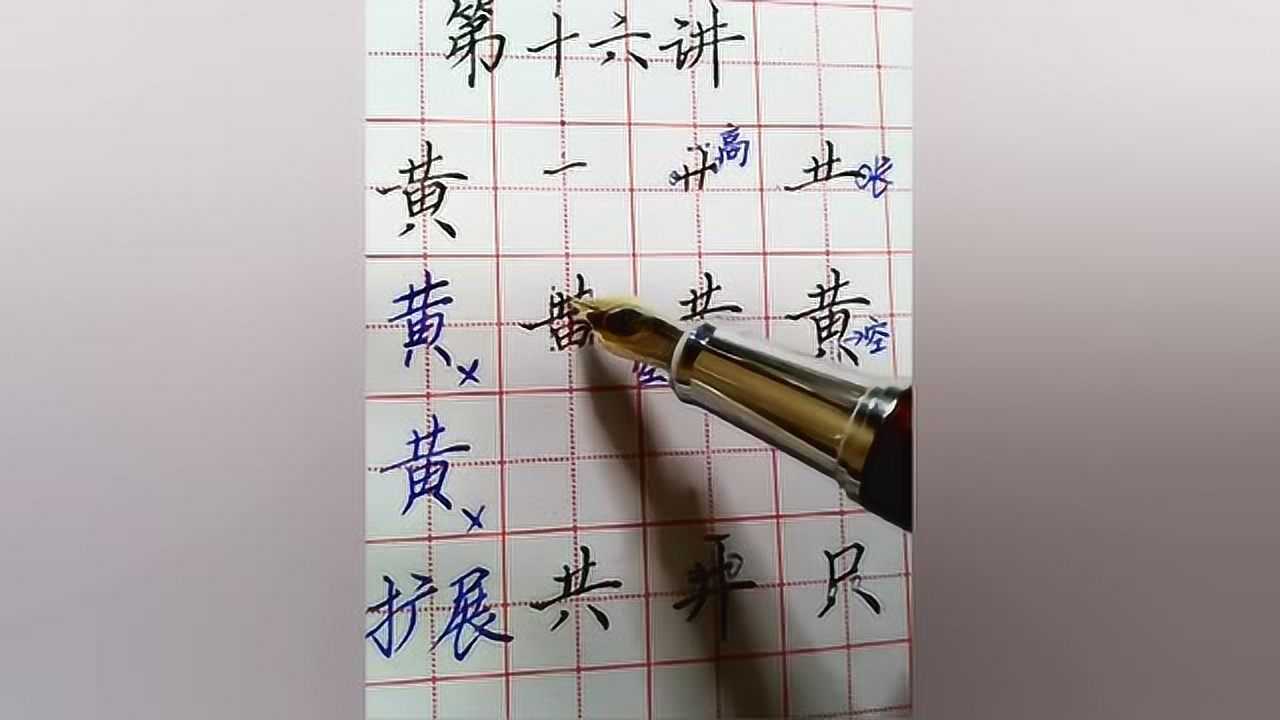 第十六讲
黄 一 廾 高 龷 长
黄 × 黄 空
黄 ×
扩展 共 只